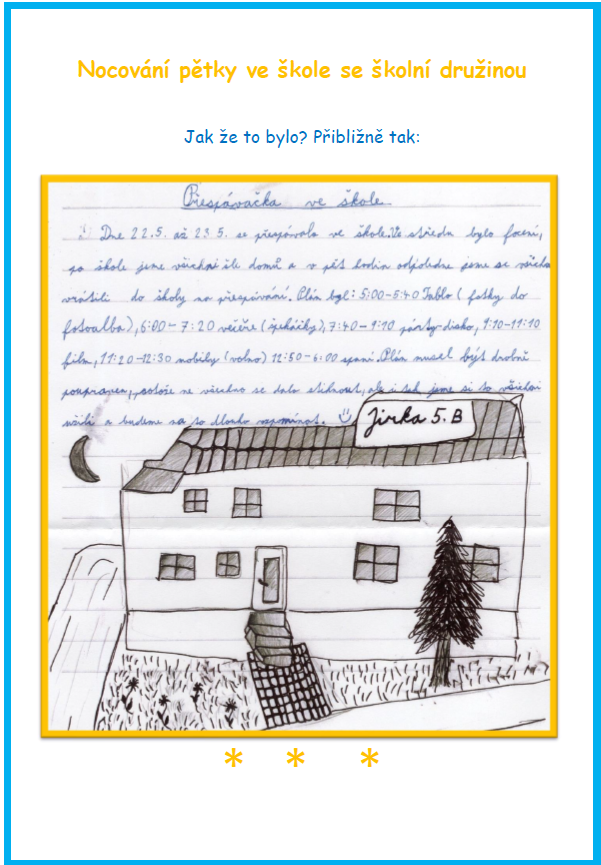 Nocování pětky ve škole se školní družinou
Jak že to bylo? Přibližně tak:
Přespávačka ve škole
Dne 22.5. až 23.5. se přespávalo ve škole. Ve středu bylo focení,
po škole jsme všichni šli domů a v pět hodin odpoledne jsme se všichni
vrátili do školy na přespávání. Plán byl: 5:00-5:40 Tablo (fotky do
fotoalba), 6:00-7:20 večeře (špekáčky), 7:40-9:10 párty-disko, 9:10-11:10
film, 11:20-12:30 mobily (volno) 12:50-6:00 spaní. Plán musel být drobně
poupraven, protože ne všechno se dalo stihnout, ale i tak jsme si to všichni
užili a budeme na to dlouho vzpomínat.
Jirka 5.B
* * *